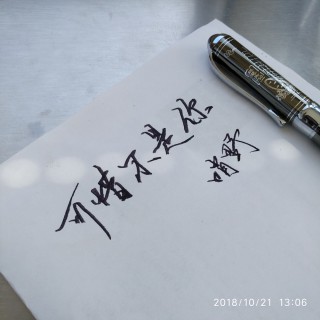 可惜不是你
2018/10/21 13:06